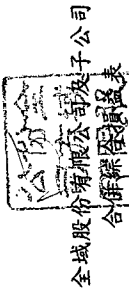 全域股份有限公司及子公司
合併綜合損益表